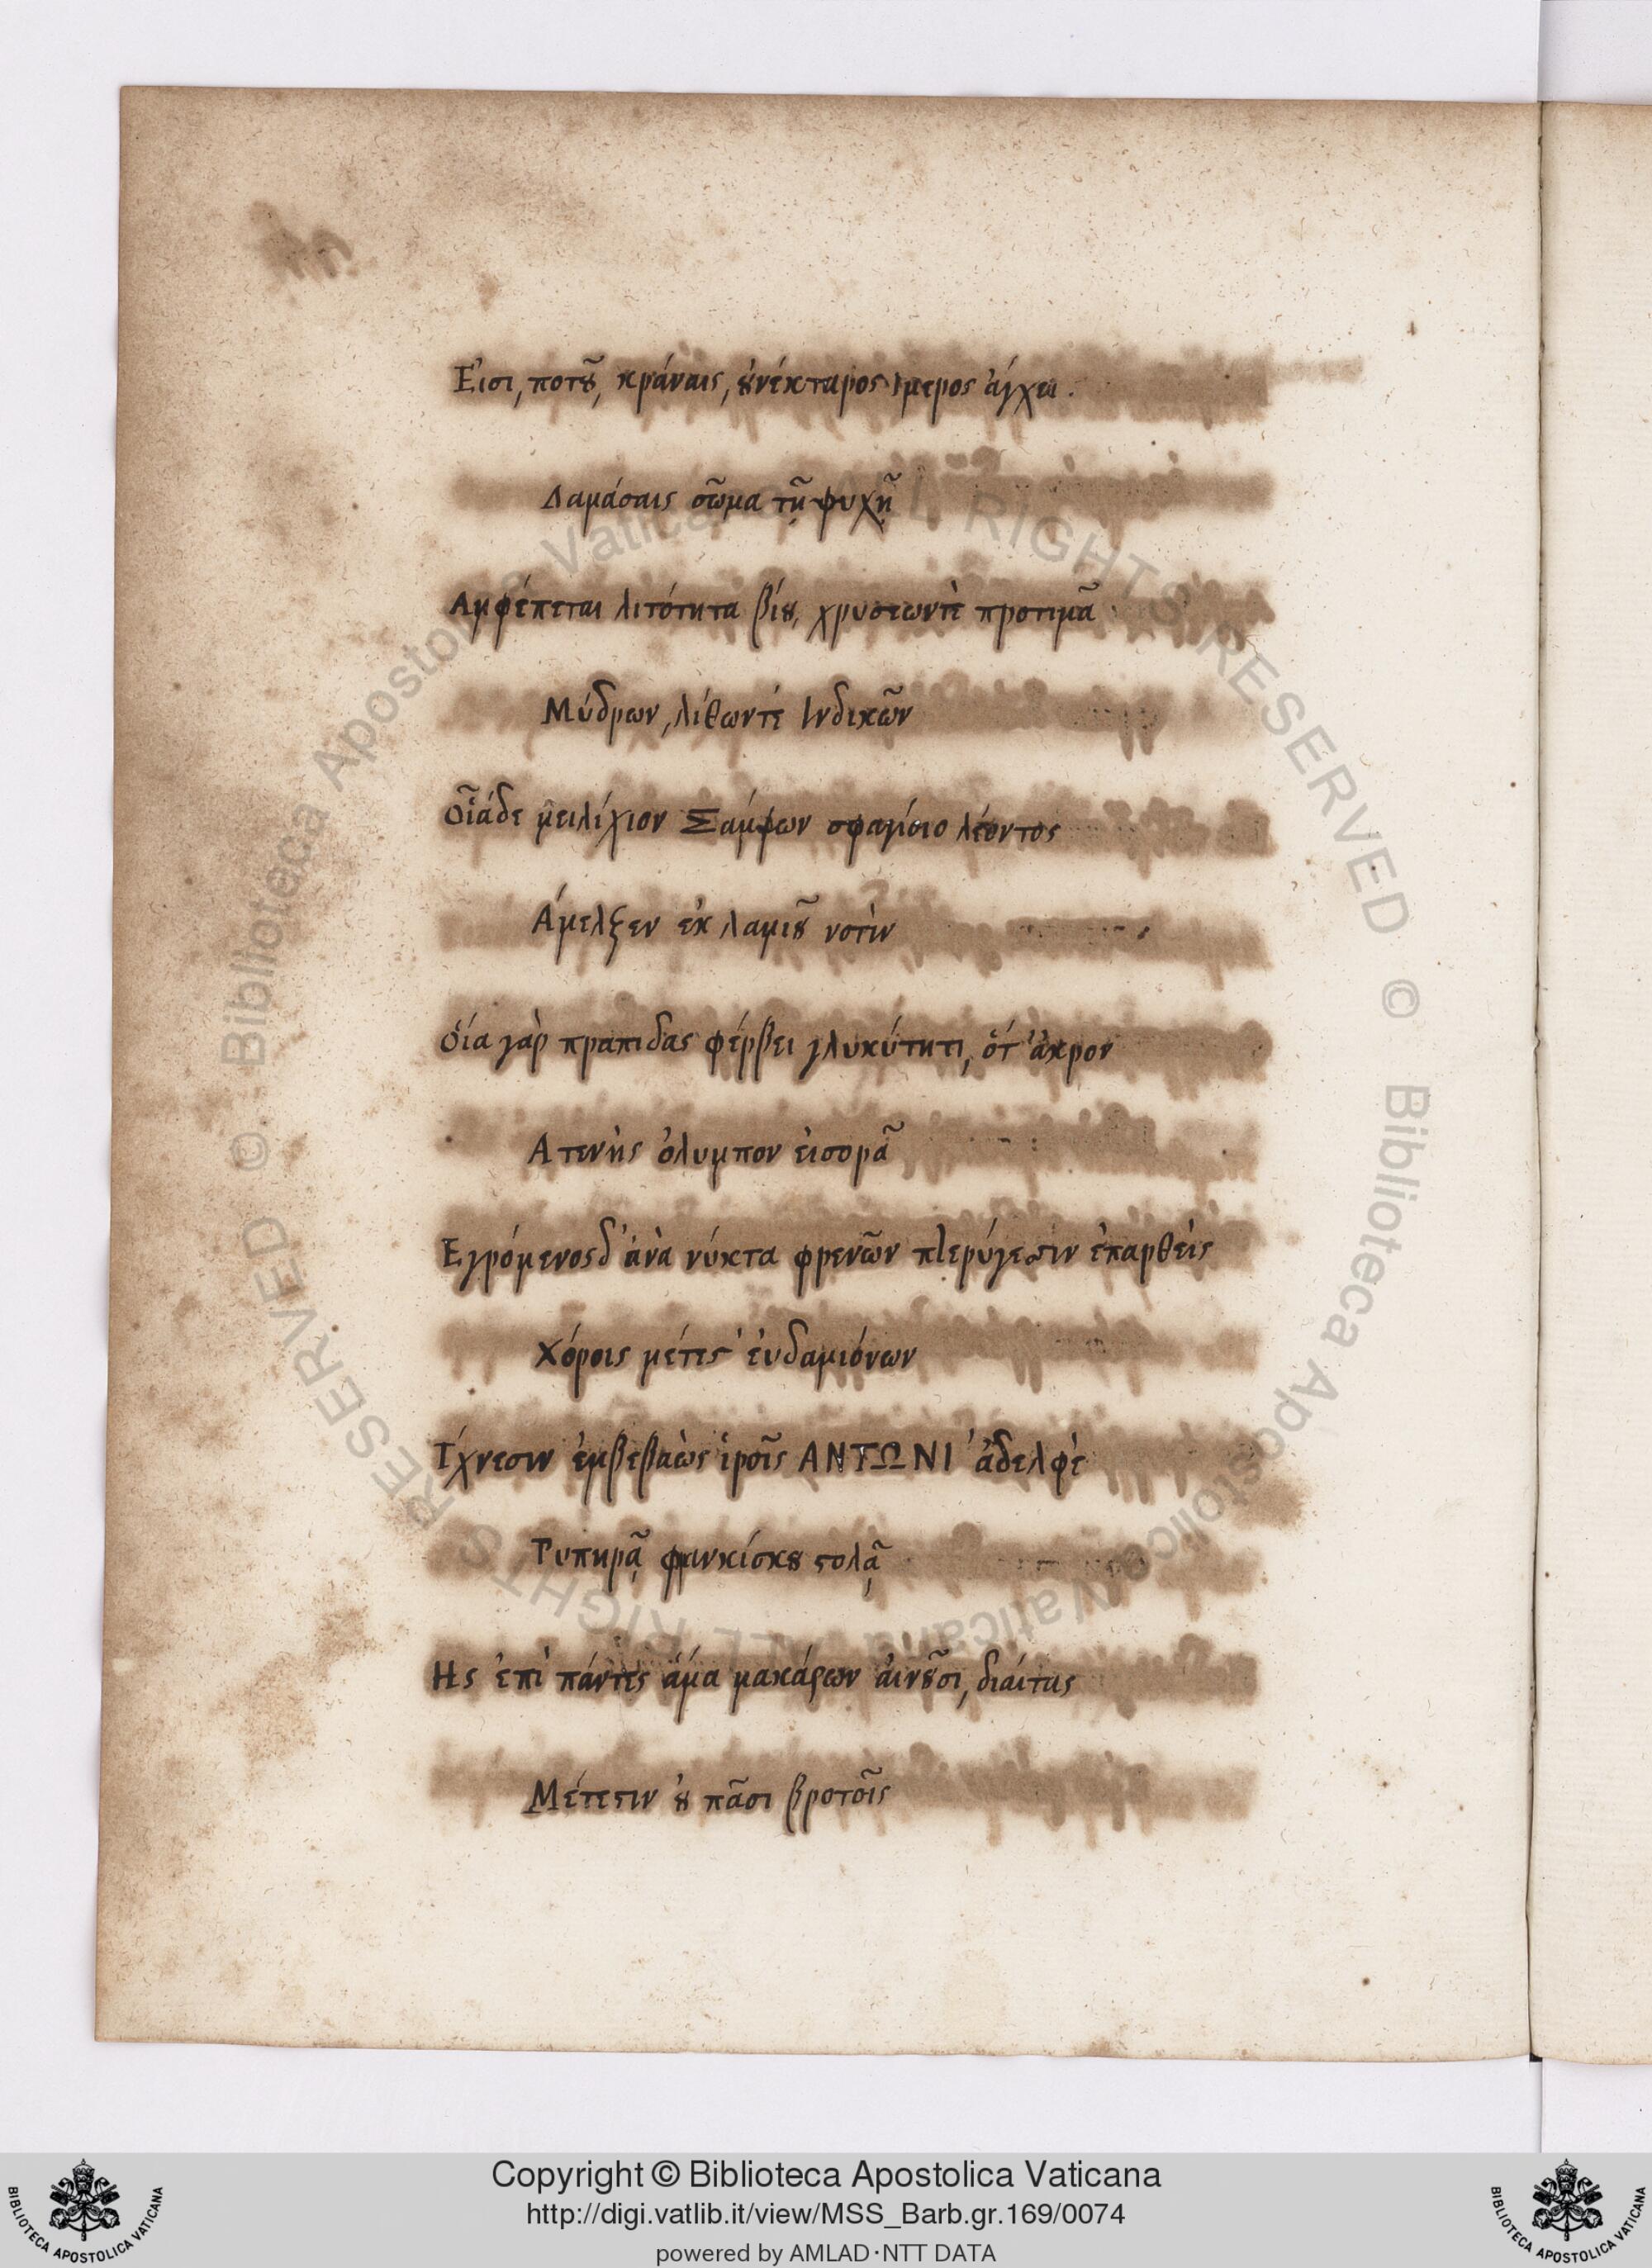 Εἰσι, ποτοῦ, κράναις, οὐνέκταρος ἵμερος ἄγχει.
Δαμάσαις σῶμα τῇ ψυχῇ
Αμφέπεται λιτότητα βίου, χρυσεωντὲ προτιμᾶ
Μύδρων, λίθωντέ Ινδικῶν
Οἷάδε μειλίχιον Σαμψων σφαγίσιο λέοντος
Άμελξεν ἐκ λαμιοῦ νοτὶν
Οἵα γὰρ πραπιδας φέρβει γλυκύτητι, ὅτ' ἄκρον
Ατενὴς ὄλυμπον εἰσορᾶ
Εγρόμενοςδ' ἀνὰ νύκτα φρενῶν πτερύγεσιν ἐπαρθεὶς
Χόροις μέτεστ' ἐυδαμιόνων
Ίχνεσιν ἐμβεβαὼς ἱροῖς ΑΝΤΩΝΙ' ἀδελφὲ
Τυπηρᾷ φρανκίσκου στολᾷ
Ης ἐπὶ πάντες ἅμα μακάρων ἀινοῦσι, διάιτης
Μέτεστιν οὐ πᾶσι βροτοῖς
Copyright © Biblioteca Apostolica Vaticana
http://digi.vatlib.it/view/MSS_Barb.gr.169/0074
powered by AMLAD·NTT DATA